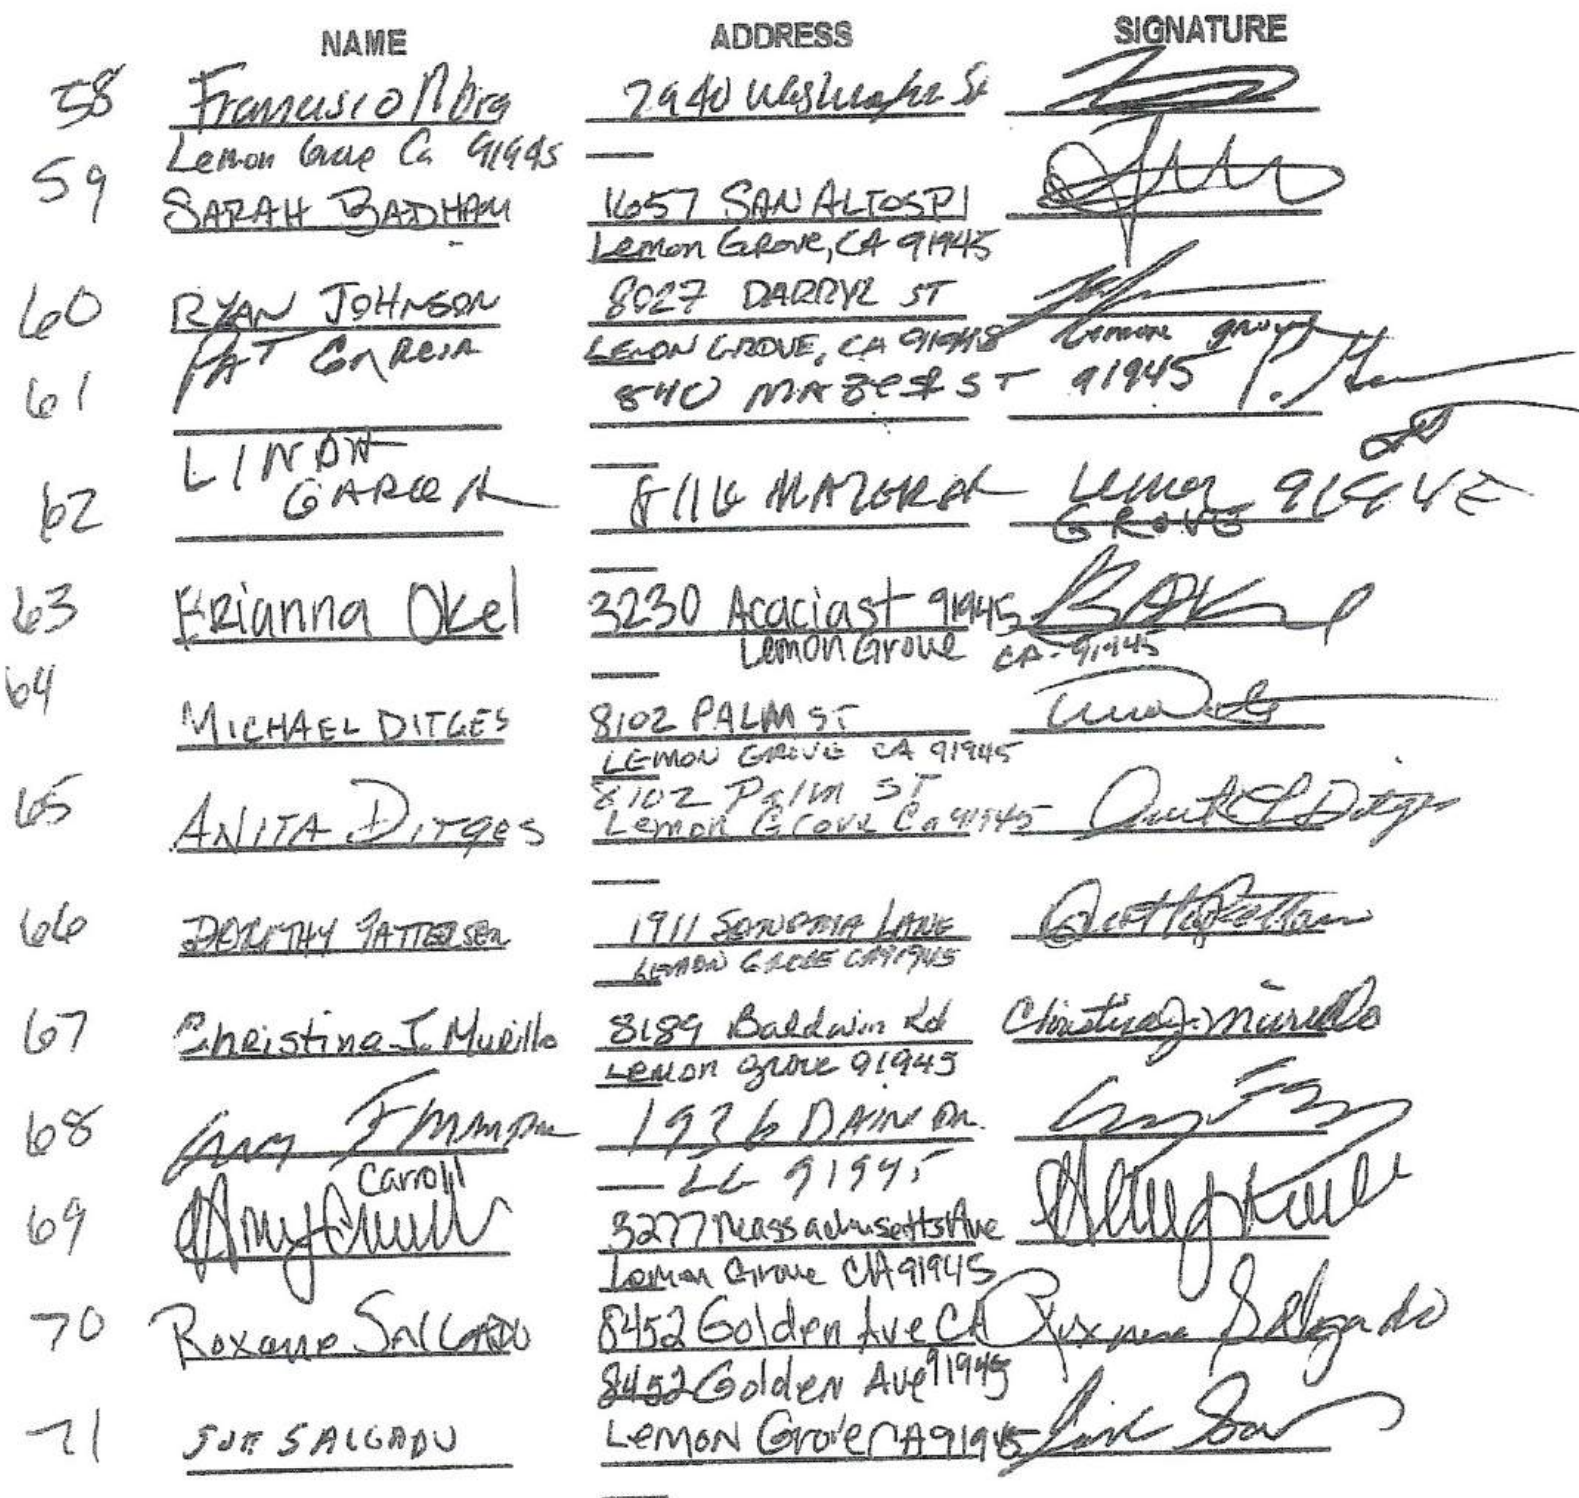 NAME ADDRESS SIGNATURE
58 Francisco Mora 7940
Lemon Grove Ca 91945
59 SARAH BADHAM 1657 SAN ALTOS Pl
Lemon Grove, CA 91945
60 RYAN JOHNSON 8027 DARRYL ST
LEMON GROVE, CA 91945 Lemon grove
61 PAT GARCIA 840 MAZER ST 91945 P.
62 LINDA GARCIA 8116 MAZER Lemon GROVE 91945
63 BRianna Okel 3230 Acacia st 91945
Lemon Grove CA 91945
64 MICHAEL DITGES 8102 PALM ST
LEMON GROVE CA 91945
65 ANITA DITges 8102 Palm ST
Lemon Grove Ca 91945
66 DOROTHY PATTERSON 1911 SONOMA LANE
LEMON GROVE CA 91945
67 Christina J. Murillo 8189 Baldwin Rd Christina J. Murillo
Lemon grove 91945
68 1936 DAIN DR.
LG 91945
69 Amy Carroll 3277 Massachusetts Ave
Lemon Grove CA 91945
70 Roxanne SALGADO 8452 Golden Ave CA Roxanne Salgado
91945
8452 Golden Ave
71 JOE SALGADO LEMON Grove CA 91945